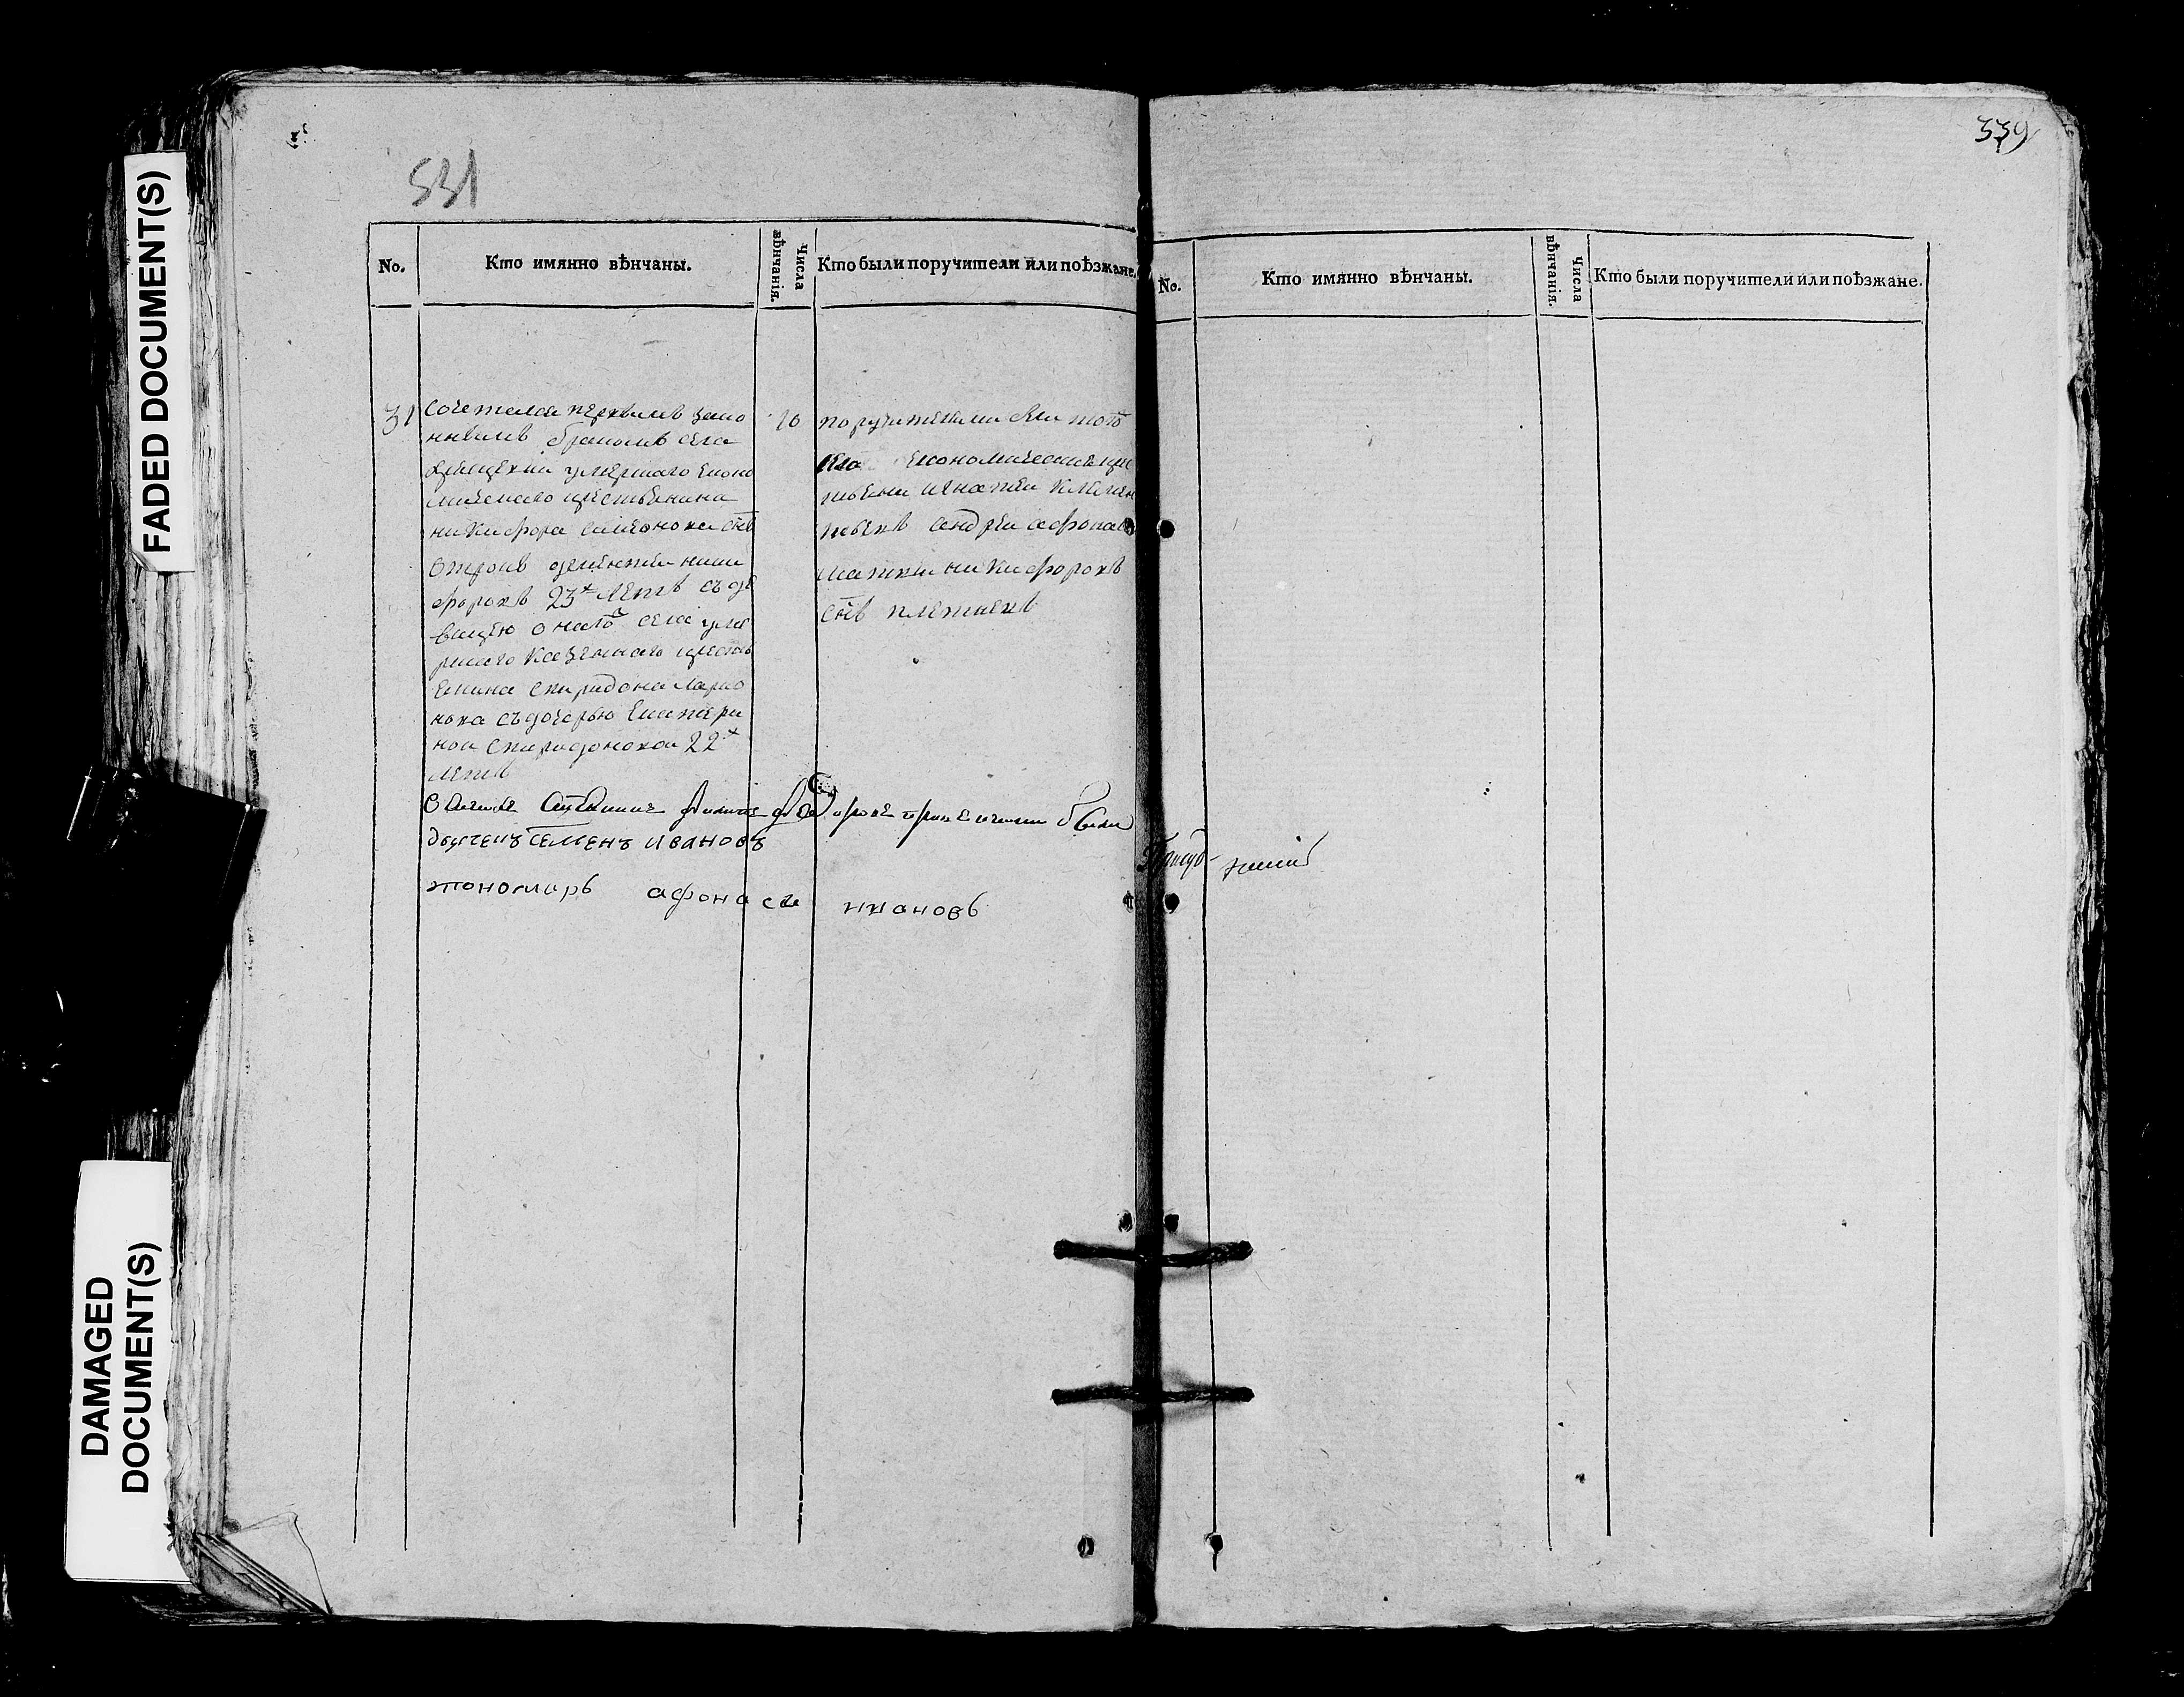 FADED DOCUMENT(S)
DAMAGED
DOCUMENT(S)
531
No.
Кто имянно вѣнчаны.
Числа
вѣнчанія.
Кто были поручители или поѣзжане.
31
сочетался первымъ зако
ннымъ бракомъ села
умершаго Еконо
мическаго крестьянина
никифора симонова снъ
отрокъ дементеи ники
форовъ 23х летъ съ де
вицею онаго села уме
ршаго казеннаго кресть
янина спиридона ларио
нова съ дочерью Екатери
нои спиридоновои 22х
летъ
10
поручителми были того
села Економические кре
стьяни игнатеи
андреи афонасев
никифоровъ
снъ плетневъ
дьячекъ семенъ ивановъ
пономарь афонасеи ивановъ
339
No.
Кто имянно вѣнчаны.
Числа
вѣнчанія.
Кто были поручители или поѣзжане.